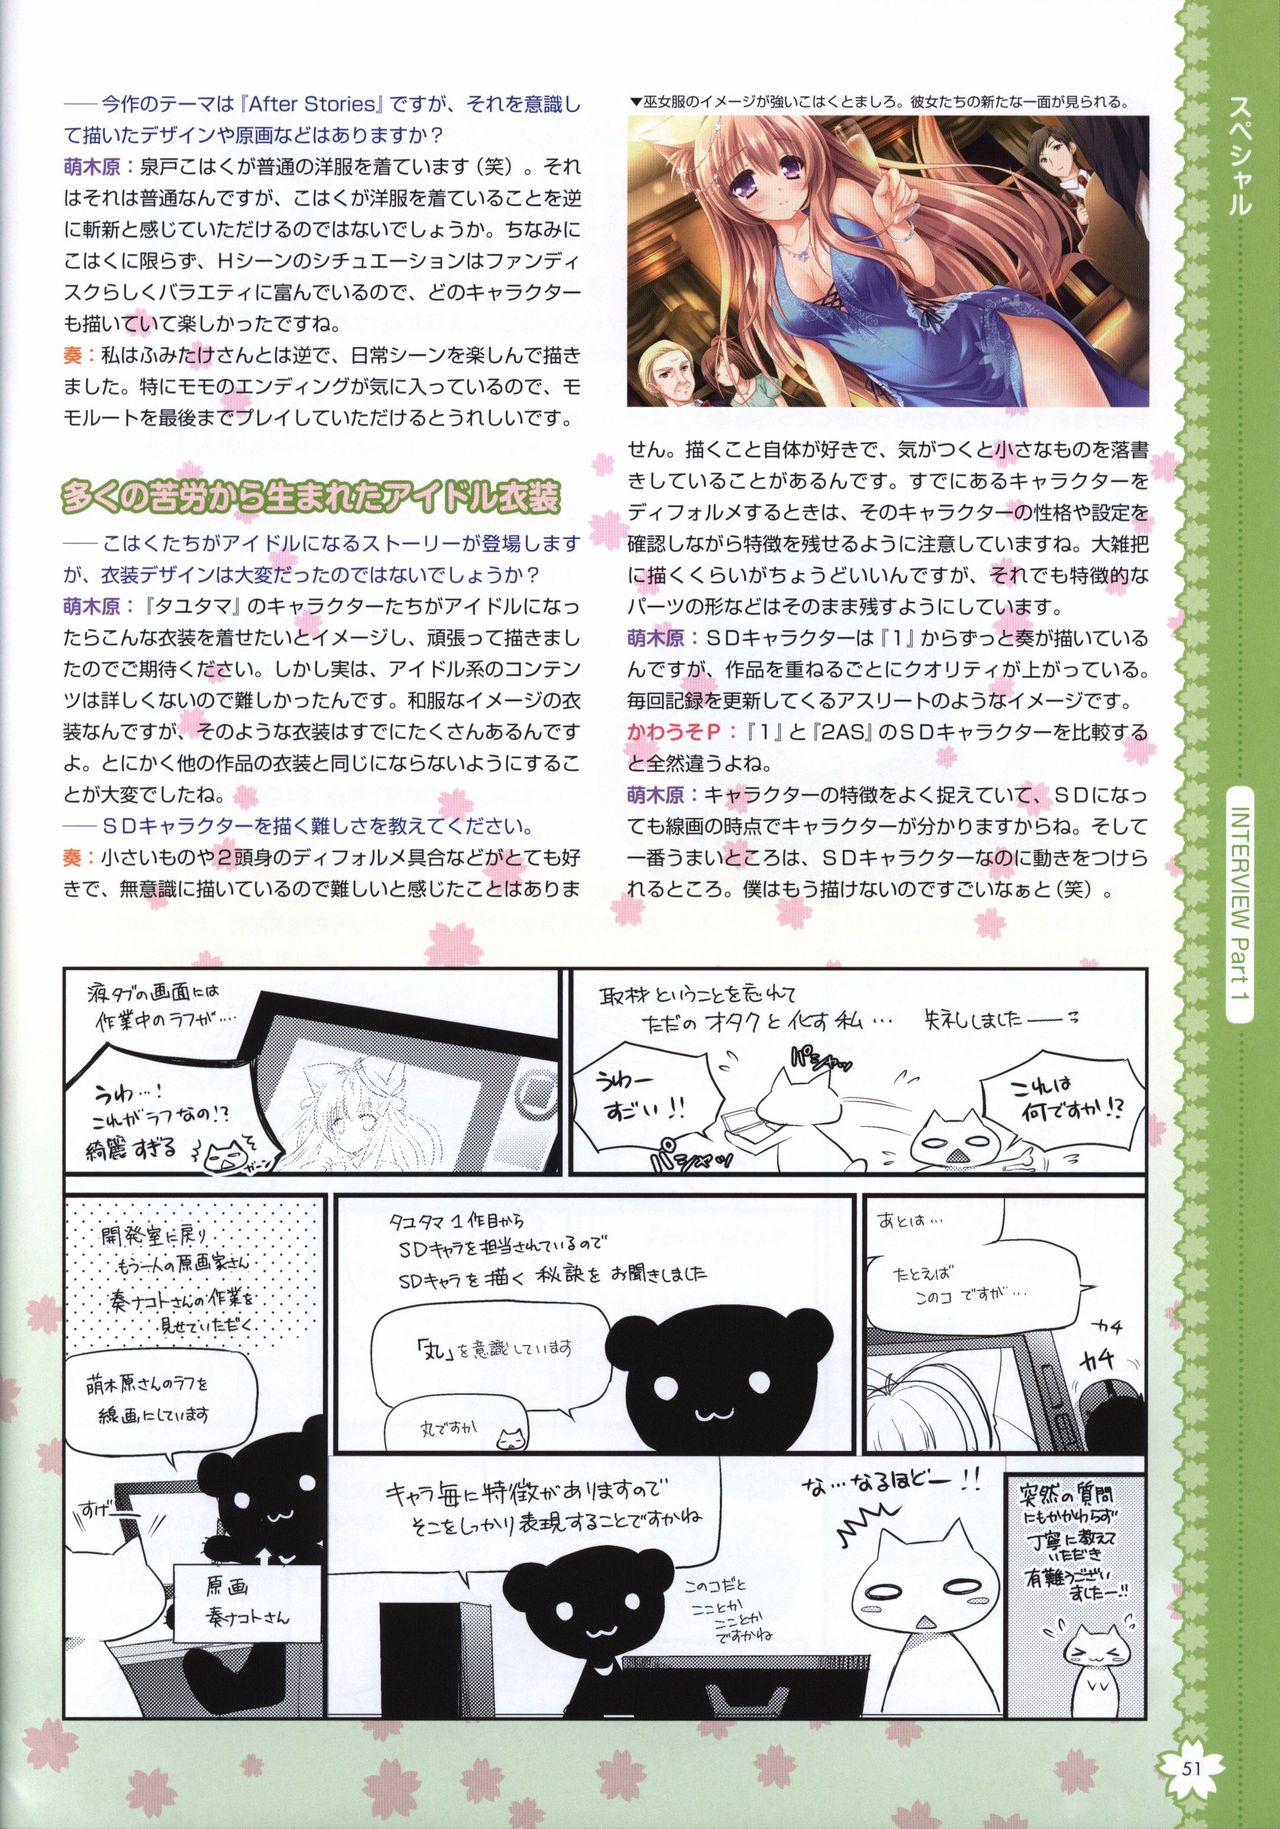 ――今作のテーマは『After Stories』ですが、それを意識し
て描いたデザインや原画などはありますか？
萌木原：泉戸こはくが普通の洋服を着ています（笑）。それ
はそれは普通なんですが、こはくが洋服を着ていることを逆
に斬新と感じていただけるのではないでしょうか。ちなみに
こはくに限らず、Ｈシーンのシチュエーションはファンディ
スクらしくバラエティに富んでいるので、どのキャラクター
も描いていて楽しかったですね。
奏：私はふみたけさんとは逆で、日常シーンを楽しんで描き
ました。特にモモのエンディングが気に入っているので、モ
モルートを最後までプレイしていただけるとうれしいです。
多くの苦労から生まれたアイドル衣装
――こはくたちがアイドルになるストーリーが登場します
が、衣装デザインは大変だったのではないでしょうか？
萌木原：『タユタマ』のキャラクターたちがアイドルになっ
たらこんな衣装を着せたいとイメージし、頑張って描きまし
たのでご期待ください。しかし実は、アイドル系のコンテン
ツは詳しくないので難しかったんです。和服なイメージの衣
装なんですが、そのような衣装はすでにたくさんあるんです
よ。とにかく他の作品の衣装と同じにならないようにするこ
とが大変でしたね。
――ＳＤキャラクターを描く難しさを教えてください。
奏：小さいものや２頭身のディフォルメ具合などがとても好
きで、無意識に描いているので難しいと感じたことはありま
▼巫女服のイメージが強いこはくとましろ。彼女たちの新たな一面が見られる。
せん。描くこと自体が好きで、気がつくと小さなものを落書
きしていることがあるんです。すでにあるキャラクターを
ディフォルメするときは、そのキャラクターの性格や設定を
確認しながら特徴を残せるように注意していますね。大雑把
に描くくらいがちょうどいいんですが、それでも特徴的な
パーツの形などはそのまま残すようにしています。
萌木原：ＳＤキャラクターは『１』からずっと奏が描いている
んですが、作品を重ねるごとにクオリティが上がっている。
毎回記録を更新してくるアスリートのようなイメージです。
かわうそＰ：『１』と『2AS』のＳＤキャラクターを比較する
と全然違うよね。
萌木原：キャラクターの特徴をよく捉えていて、ＳＤになっ
ても線画の時点でキャラクターが分かりますからね。そして
一番うまいところは、ＳＤキャラクターなのに動きをつけら
れるところ。僕はもう描けないのですごいなぁと（笑）。
スペシャル
INTERVIEW Part 1
取材ということを忘れて
ただの オタクと化す私… 失礼しましたーーっ
これは
何ですか!?
パシャッ
うわー
すごい!!
パシャッ
液タブの画面には
作業中のラフが…
うわ…!
これがラフなの!?
綺麗すぎる
ガーン
あとは…
たとえば
このコ ですが…
カチ
カチ
タユタマ １作目から
SDキャラを担当されているので
SDキャラを描く 秘訣を お聞きしました
「丸」を意識しています
丸ですか
開発室に戻り
もう一人の原画家さん
奏ナコトさんの作業を
見せていただく
萌木原さんのラフを
線画にしています
すげー
原画
奏ナコトさん
キャラ毎に特徴がありますので
そこをしっかり表現することですかね
このコだと
こことか
こことか
ですかね
な…なるほどー!!
突然の質問
にもかかわらず
丁寧に教えて
いただき
有難うござい
ましたー!!
51